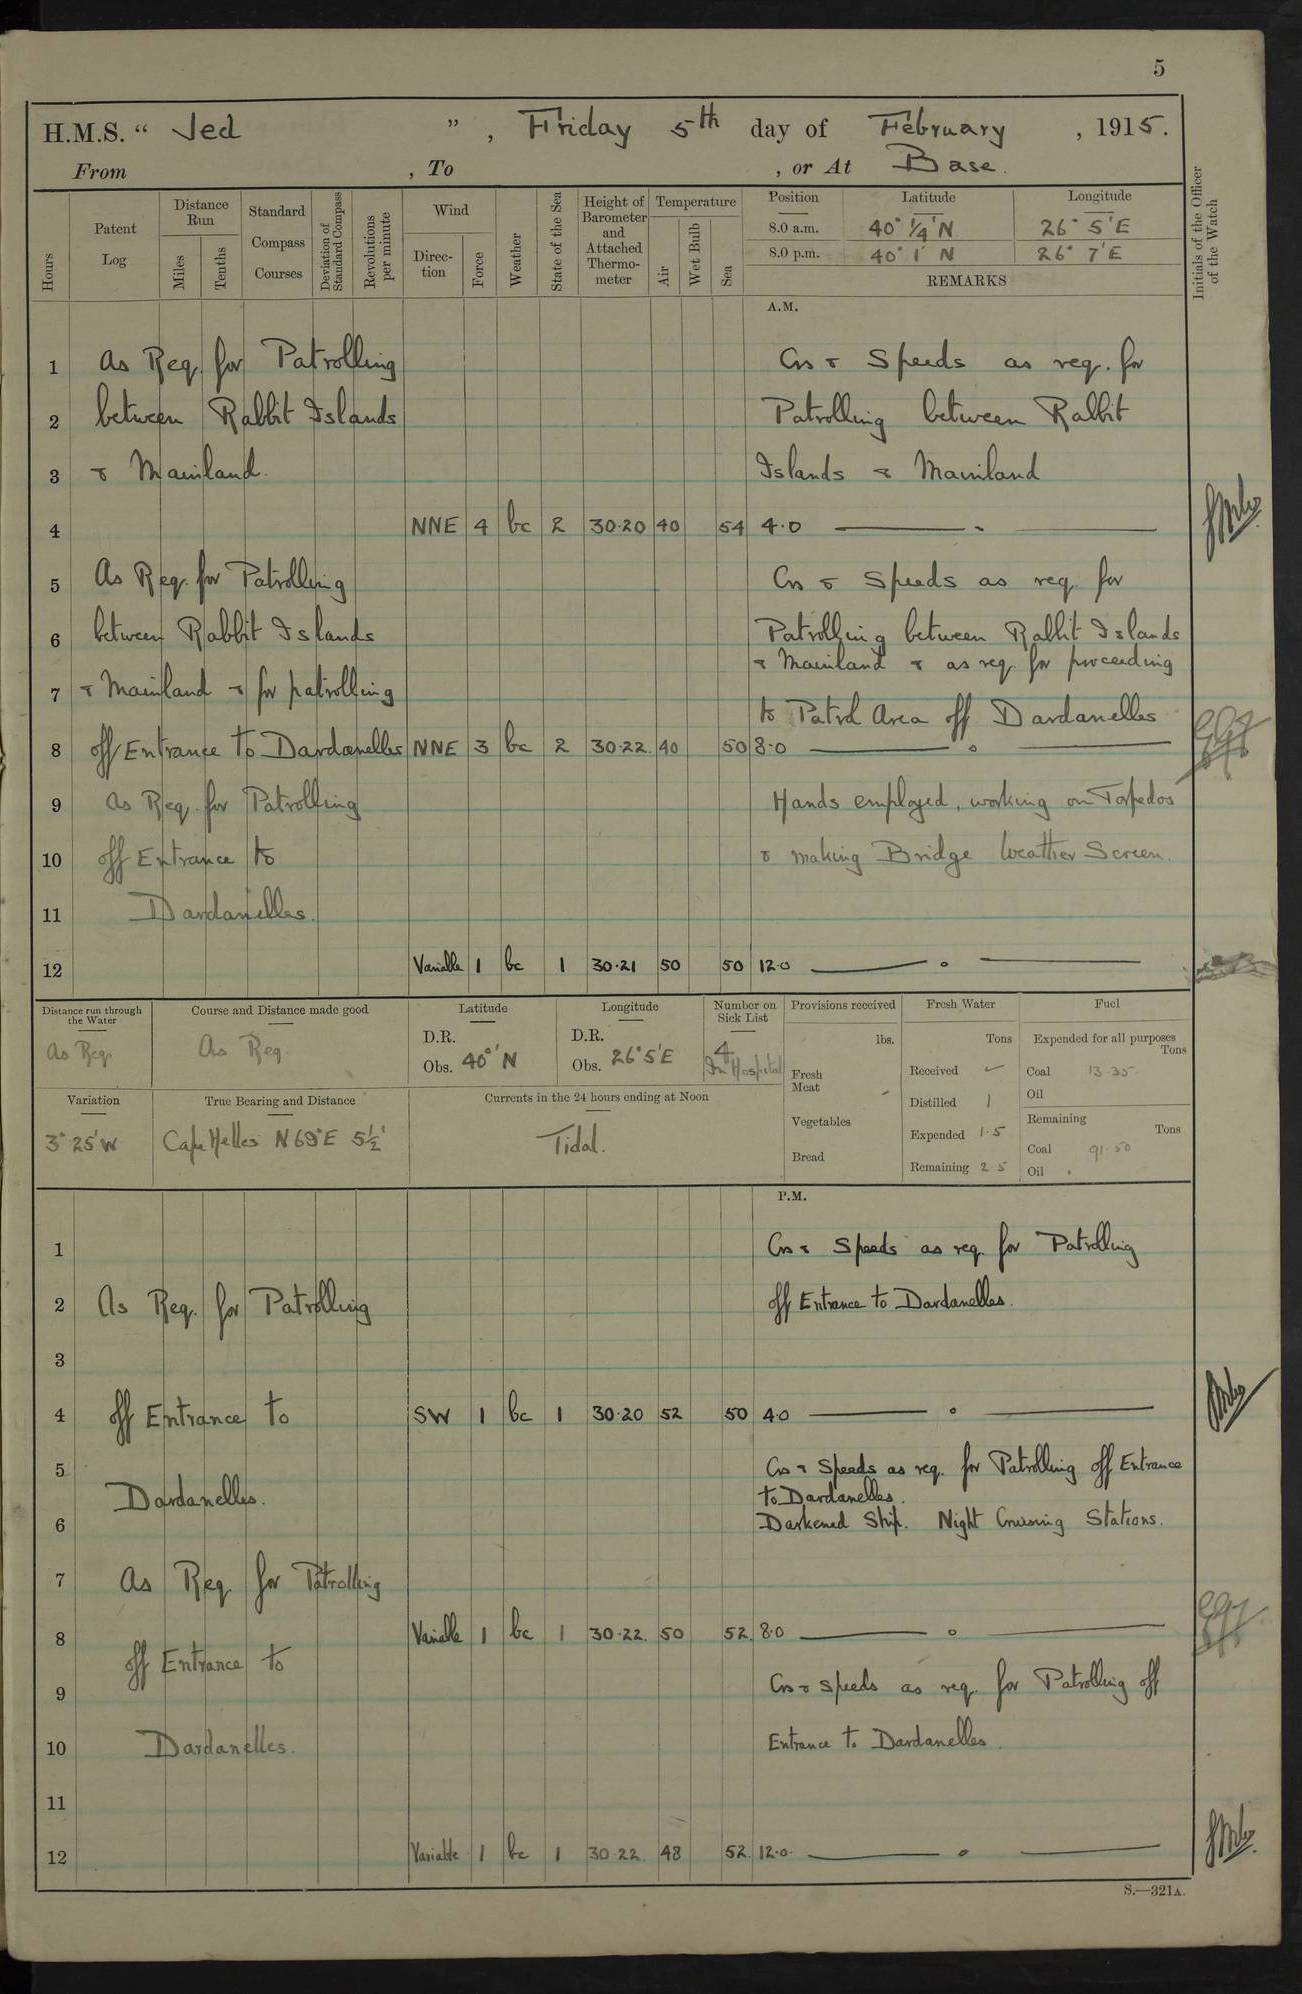 5
H.M.S. “ Jed ” , Friday 5th day of February , 1915.
From , To , or At Base.
Hours
Patent Log
Distance Run
Miles
Tenths
Standard Compass Courses
Deviation of Standard Compass
Revolutions per minute
Wind
Direction
Force
Weather
State of the Sea
Height of Barometer and Attached Thermometer
Temperature
Air
Wet Bulb
Sea
Position Latitude Longitude
8.0 a.m. 40° ¼' N 26° 5' E
8.0 p.m. 40° 1' N 26° 7' E
REMARKS
Initials of the Officer of the Watch
A.M.
1 As Req. for Patrolling Cos & Speeds as req. for
2 between Rabbit Islands Patrolling between Rabbit
3 & Mainland. Islands & Mainland
4 NNE 4 bc 2 30·20 40 54 4·0
5 As Req. for Patrolling Cos & Speeds as req. for
6 between Rabbit Islands Patrolling between Rabbit Islands
& Mainland & as req. for proceeding
7 & Mainland & for patrolling
to Patrol Area off Dardanelles
8 off Entrance to Dardanelles NNE 3 bc 2 30·22 40 50 8·0
9 As Req. for Patrolling Hands employed, working on Torpedos
10 off Entrance to & making Bridge Weather Screen.
11 Dardanelles.
12 Variable 1 bc 1 30·21 50 50 12·0
Distance run through the Water
As Req.
Course and Distance made good
As Req.
Latitude
D.R.
Obs. 40° ' N
Longitude
D.R.
Obs. 26° 5' E
Number on Sick List
4
In Hospital
Provisions received
lbs.
Fresh Meat
Vegetables
Bread
Fresh Water
Tons
Received
Distilled 1
Expended 1·5
Remaining 2·5
Fuel
Expended for all purposes
Tons
Coal 13·35
Oil
Remaining
Tons
Coal 91·50
Oil
Variation
3° 25' W
True Bearing and Distance
Cape Helles N 69° E 5½'
Currents in the 24 hours ending at Noon
Tidal.
P.M.
1 Cos & Speeds as req. for Patrolling
2 As Req. for Patrolling off Entrance to Dardanelles.
3
4 off Entrance to SW 1 bc 1 30·20 52 50 4·0
5 Cos & Speeds as req. for Patrolling off Entrance
Dardanelles. to Dardanelles.
6 Darkened Ship. Night Cruising Stations.
7 As Req. for Patrolling
8 Variable 1 bc 1 30·22 50 52 8·0
off Entrance to
9 Cos & speeds as req. for Patrolling off
10 Dardanelles. Entrance to Dardanelles.
11
12 Variable 1 bc 1 30·22 48 52 12·0
S.—321A.